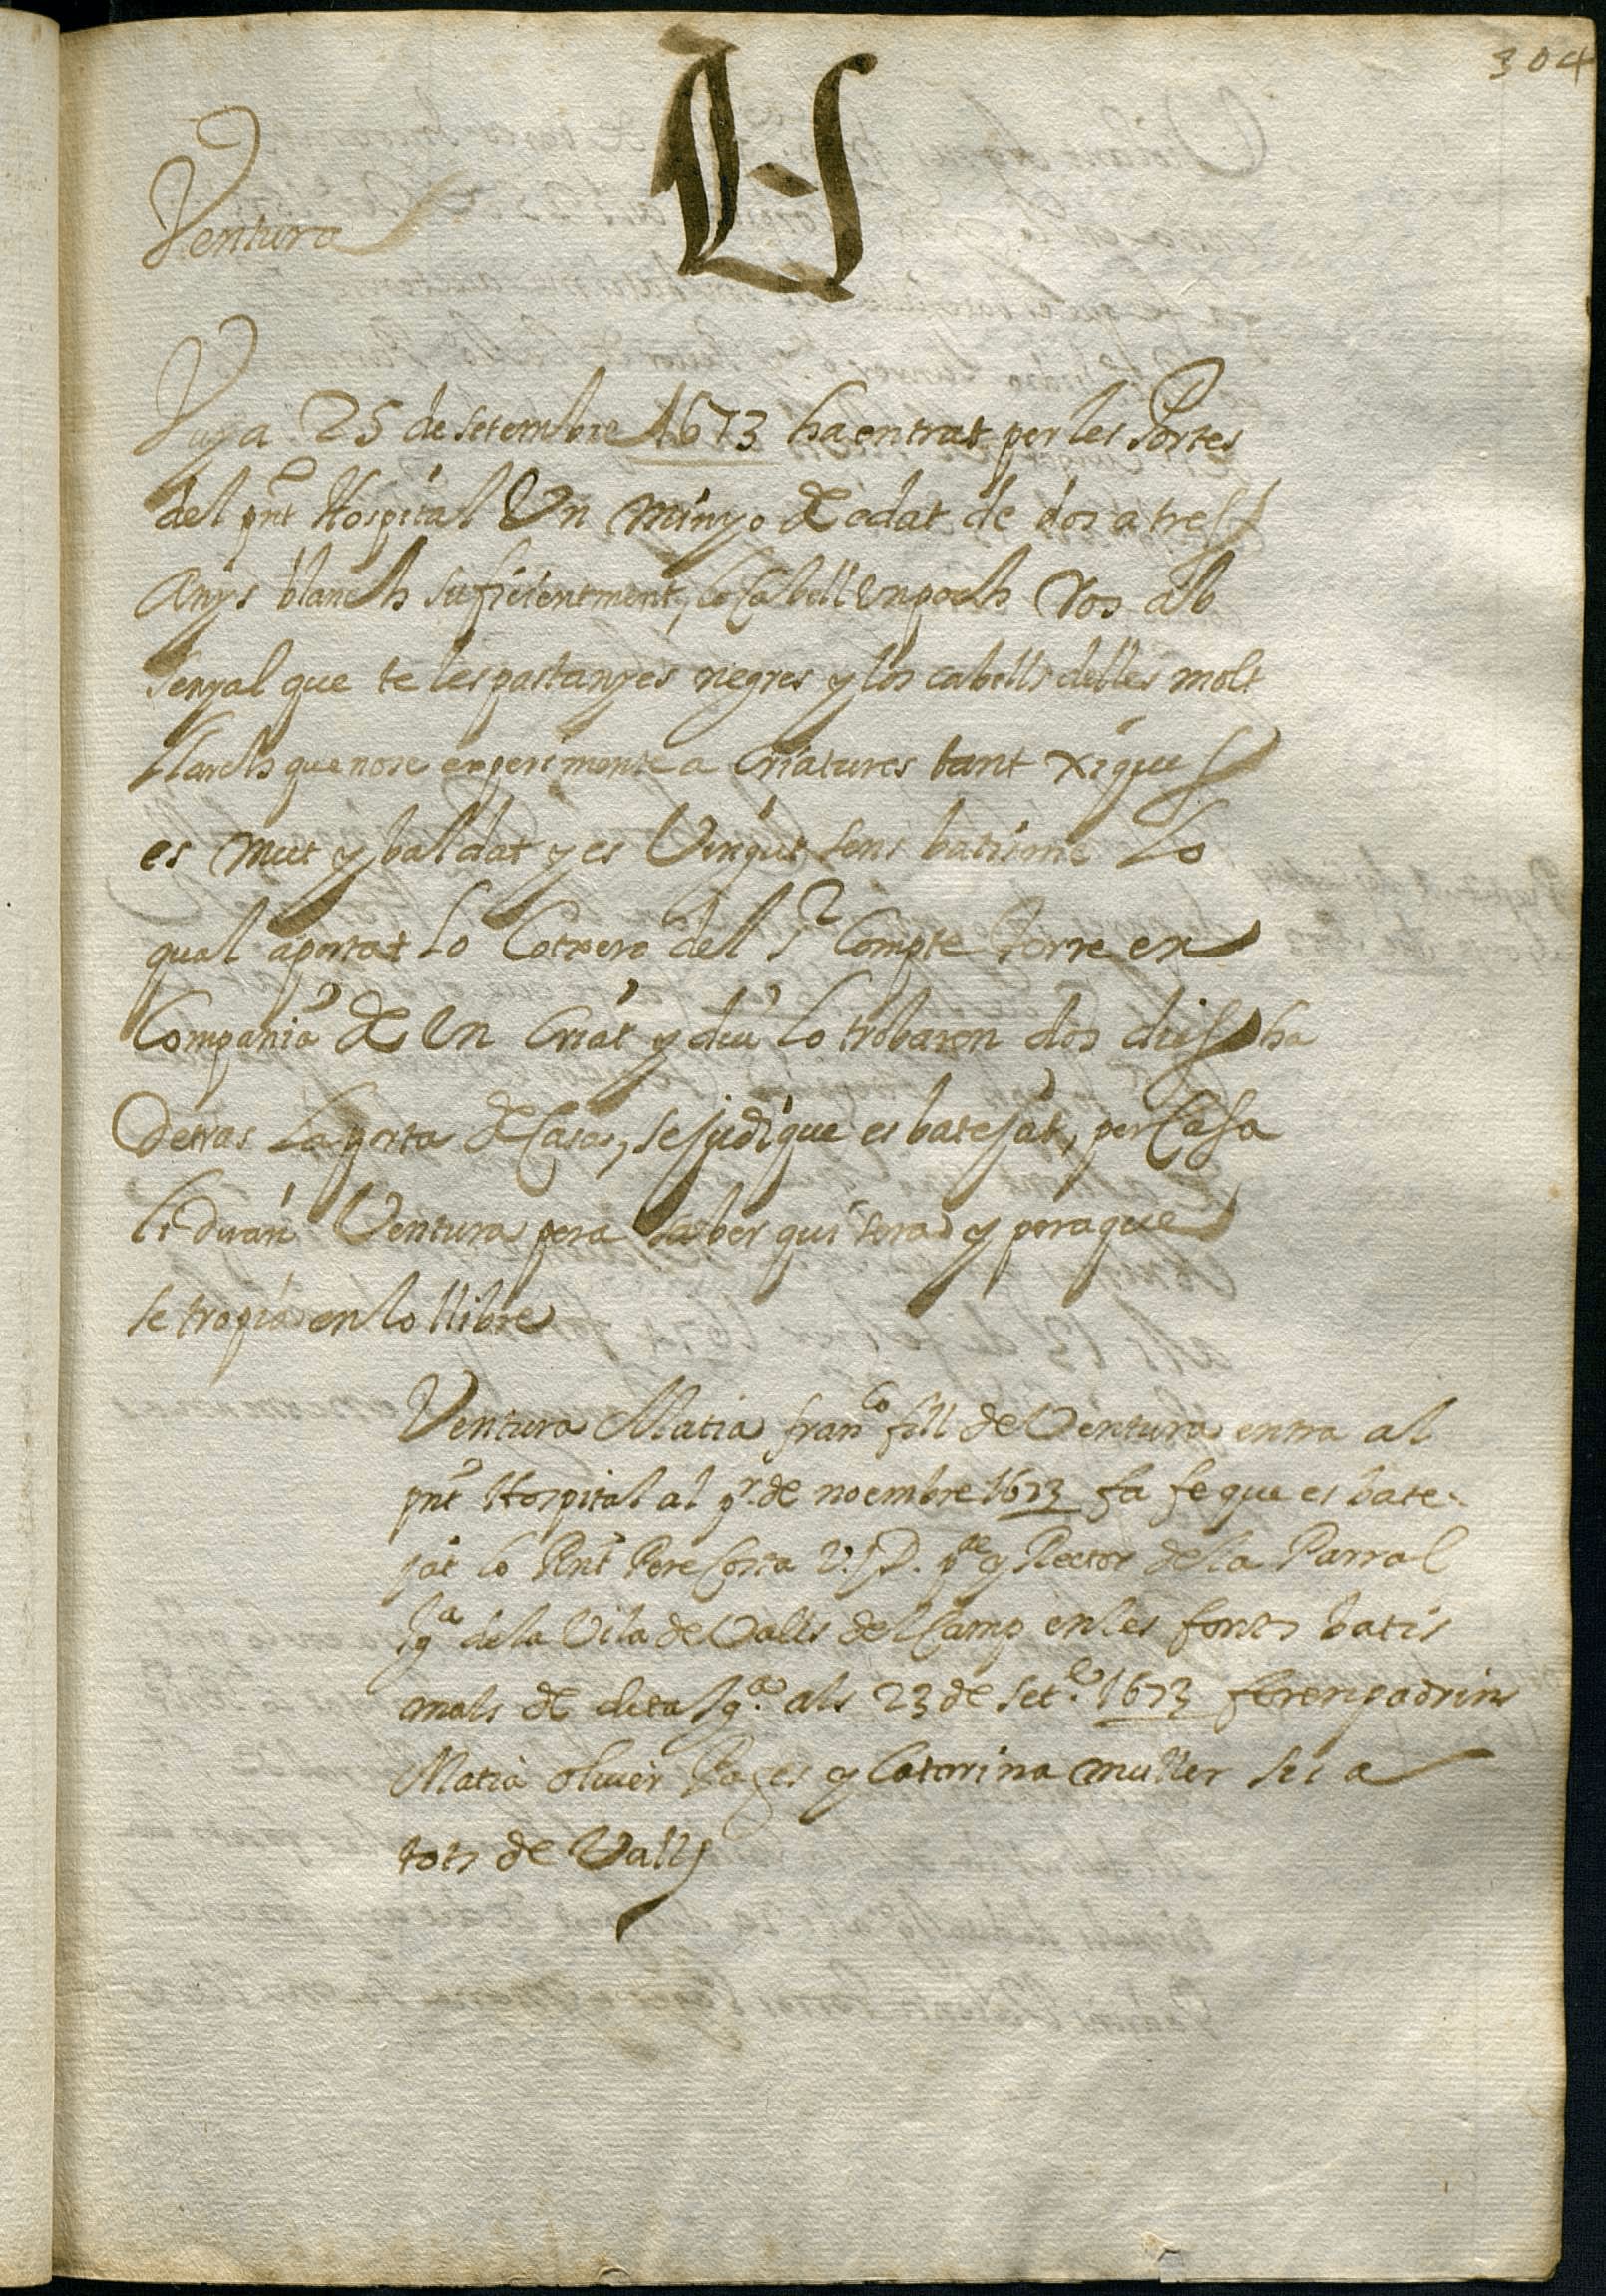 304
V
Ventura
Vuy a 25 de setembre 1673 ha entrat per les Portes
del pnt Hospital Un minyo de edat de dos a tres
Anys blanch sufisientment, lo Cabell Un poch Ros ab
senyal que te les pastanyes negres y los cabells delles molt
llarchs que nose experimente a Criatures tant xiques
es mut y baldat y es Vingut sens batisme Lo
qual aportat Lo Cotxero del Sr Compte Torre en
Compania de Un Criat y diu lo trobaren dos dies ha
Detras La porta de Casa, se judique es batejat, per Casa
li diran Ventura pera saber qui sera y peraque
se tropia en lo llibre
Ventura Matia franco fill de Ventura entra al
pnt Hospital al pr. de noembre 1673 fa fe que es bate-
jat lo Rnt Pere Costa U.J.D. pre y Rector de la Parral
Iga de la Vila de Valls del Camp en les fonts batis
mals de dita Iga. als 23 de sete. 1673 foren padrins
Matia oliver Pages y Catarina muller sua
tots de Valls